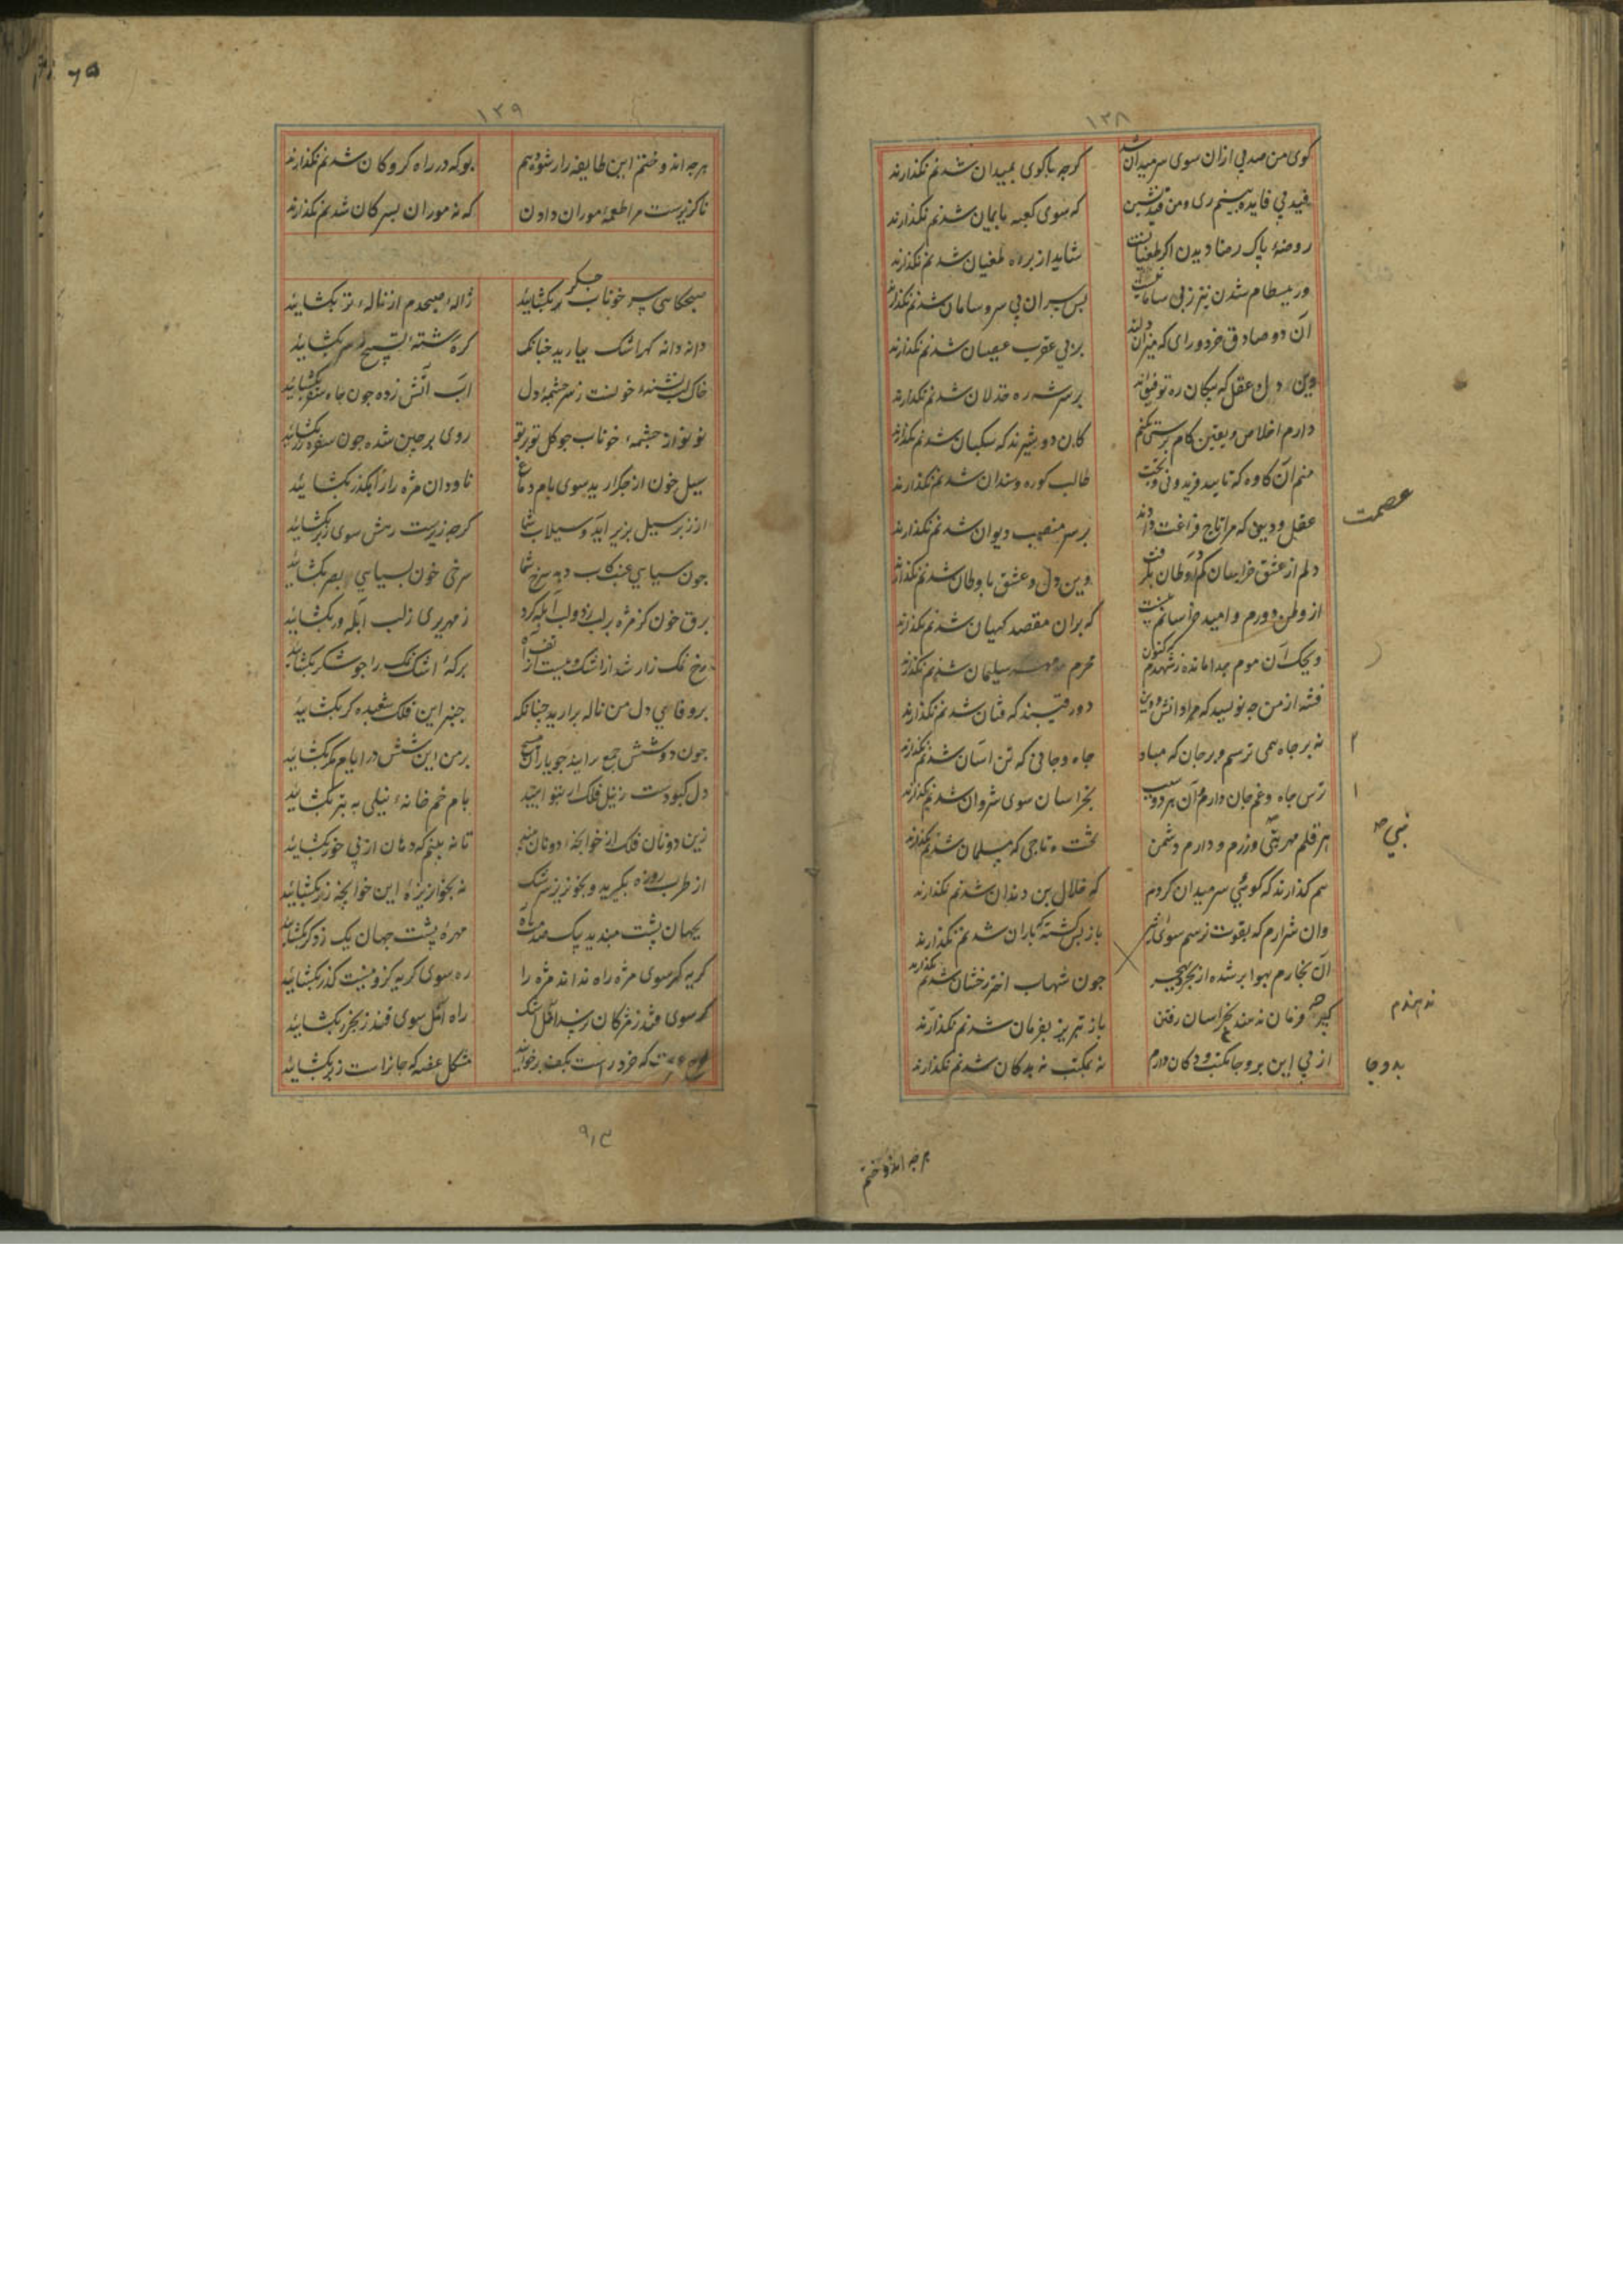 ۱۳۸
کوی من صد پی ازان سوی سر میدان شد
کرچه باکوی بمیدان شدنم نکذارند
که سوی کعبه بایمان شدنم نکذارند
روضهٔ پاک رضا دیدن اکر طغیانست
شاید از بر ره طغیان شدنم نکذارند
ور ببسطام شدن نیز ز بی سامانیست
پس سران بی سر و سامان شدنم نکذارند
آن دو صادق خرد و رای که میزان دلند
بر پی عقرب عصیان شدنم نکذارند
وین دل و عقل که پیکان ره توفیق‌اند
بر سر شه ره خذلان شدنم نکذارند
دارم اخلاص و یقین کام پرستی نکنم
کان دو شیرند که سکبان شدنم نکذارند
منم آن کاوه که تایید فریدونی و بخت
طالب کوره و سندان شدنم نکذارند
عصمت
عقل و دین که مرا تاج فراغت دادند
بر سر منصب دیوان شدنم نکذارند
دلم از عشق خراسان کم اوطان بکرفت
وین دل و عشق باوطان شدنم نکذارند
از وطن دورم و امید خراسانم نیست
که بران مقصد کیهان شدنم نکذارند
ویحک آن موم جدا مانده ز شهدم کنون
محرم مهر سلیمان شدنم نکذارند
فتنه از من چه نویسد که مرا دانش و دین
دو رقیبند که فتان شدنم نکذارند
۲
نه بر جاه همی ترسم و بر جان که مباد
جاه و جانی که تن اسان شدنم نکذارند
۱
ترس جاه و غم جان دارم و زان هر دو سبب
بخراسان سوی شروان شدنم نکذارند
هر قلم مهر نبی ورزم و دارم دشمن
تخت و تاجی که سلیمان شدنم نکذارند
هم کذارند که کوئی سر میدان کردم
که خلال بن دندان شدنم نکذارند
وان شرارم که بقوت نرسم سوی اثیر
جون شهاب اختر رخشان شدنم نکذارند
آن بخارم بهوا بر شده از بحر ببحر
باز پس کشته که باران شدنم نکذارند
کیرم فرمان ندهند بخراسان رفتن
باز تبریز بفرمان شدنم نکذارند
از پی این بروجا مکتب و دکان دارم
نه بمکتب نه بدکان شدنم نکذارند
هرچه اندوختم
۱۳۹
هرچه اندوختم این طایفه را رشوه دهم
بوکه در راه کروکان شدنم نکذارند
ناکزیرست مرا طعمهٔ موران دادن
که نه موران بسر کان شدنم نکذارند
صبحکاهی سر خوناب جکر بکشایید
ژالهٔ صبحدم از نالهٔ تر بکشایید
دانه دانه کهر اشک ببارید چنانک
کره رشتهٔ تسبیح ز سر بکشایید
خاک لب تشنهٔ خونست ز سر جشمهٔ دل
آب آتش زده جون جاه سقر بکشایید
نو نو از جشمهٔ خوناب جو کل تو بر تو
روی بر جین شده جون سفره زر بکشایید
سیل خون از جکر ارید سوی بام دماغ
ناودان مژه را راه کذر بکشایید
از زبر سیل بزیر اید و سیلاب شما
کرچه زیرست رهش سوی زبر بکشایید
جون سیاهی عنب کاب دهد سرخ شما
سرخی خون بسیاهی بصر بکشایید
برق خون کز مژه بر لب زد و لب آبله کرد
زمهریری ز لب آبله ور بکشایید
رخ نمک زار شد از اشک و ببست از تف آه
برکهٔ اشک نمک را جو شکر بکشایید
بر وفای دل من ناله برارید چنانکه
چنبر این فلک شعبده کر بکشایید
جون دوشش جمع برایید جو یاران مسیح
بر من این ششدر ایام مکر بکشایید
دل کبودست ز نیل فلک ار بتوانید
بام خم خانهٔ نیلی به تبر بکشایید
زین دو نان فلک از خوانچهٔ دونان بینید
تا نه بینم که دهان از پی خور بکشایید
از طرب روزه بکیرید و بخون ریز سرشک
نه بخوان ریزهٔ این خوانچهٔ زر بکشایید
بجهان پشت مبندید بیک صدمهٔ آه
مهرهٔ پشت جهان یک ز دکر بکشایید
کریه کر سوی مژه راه نداند مژه را
ره سوی کریه کزو نیست کذر بکشایید
مشکل غصه که جانراست ز بر بکشایید